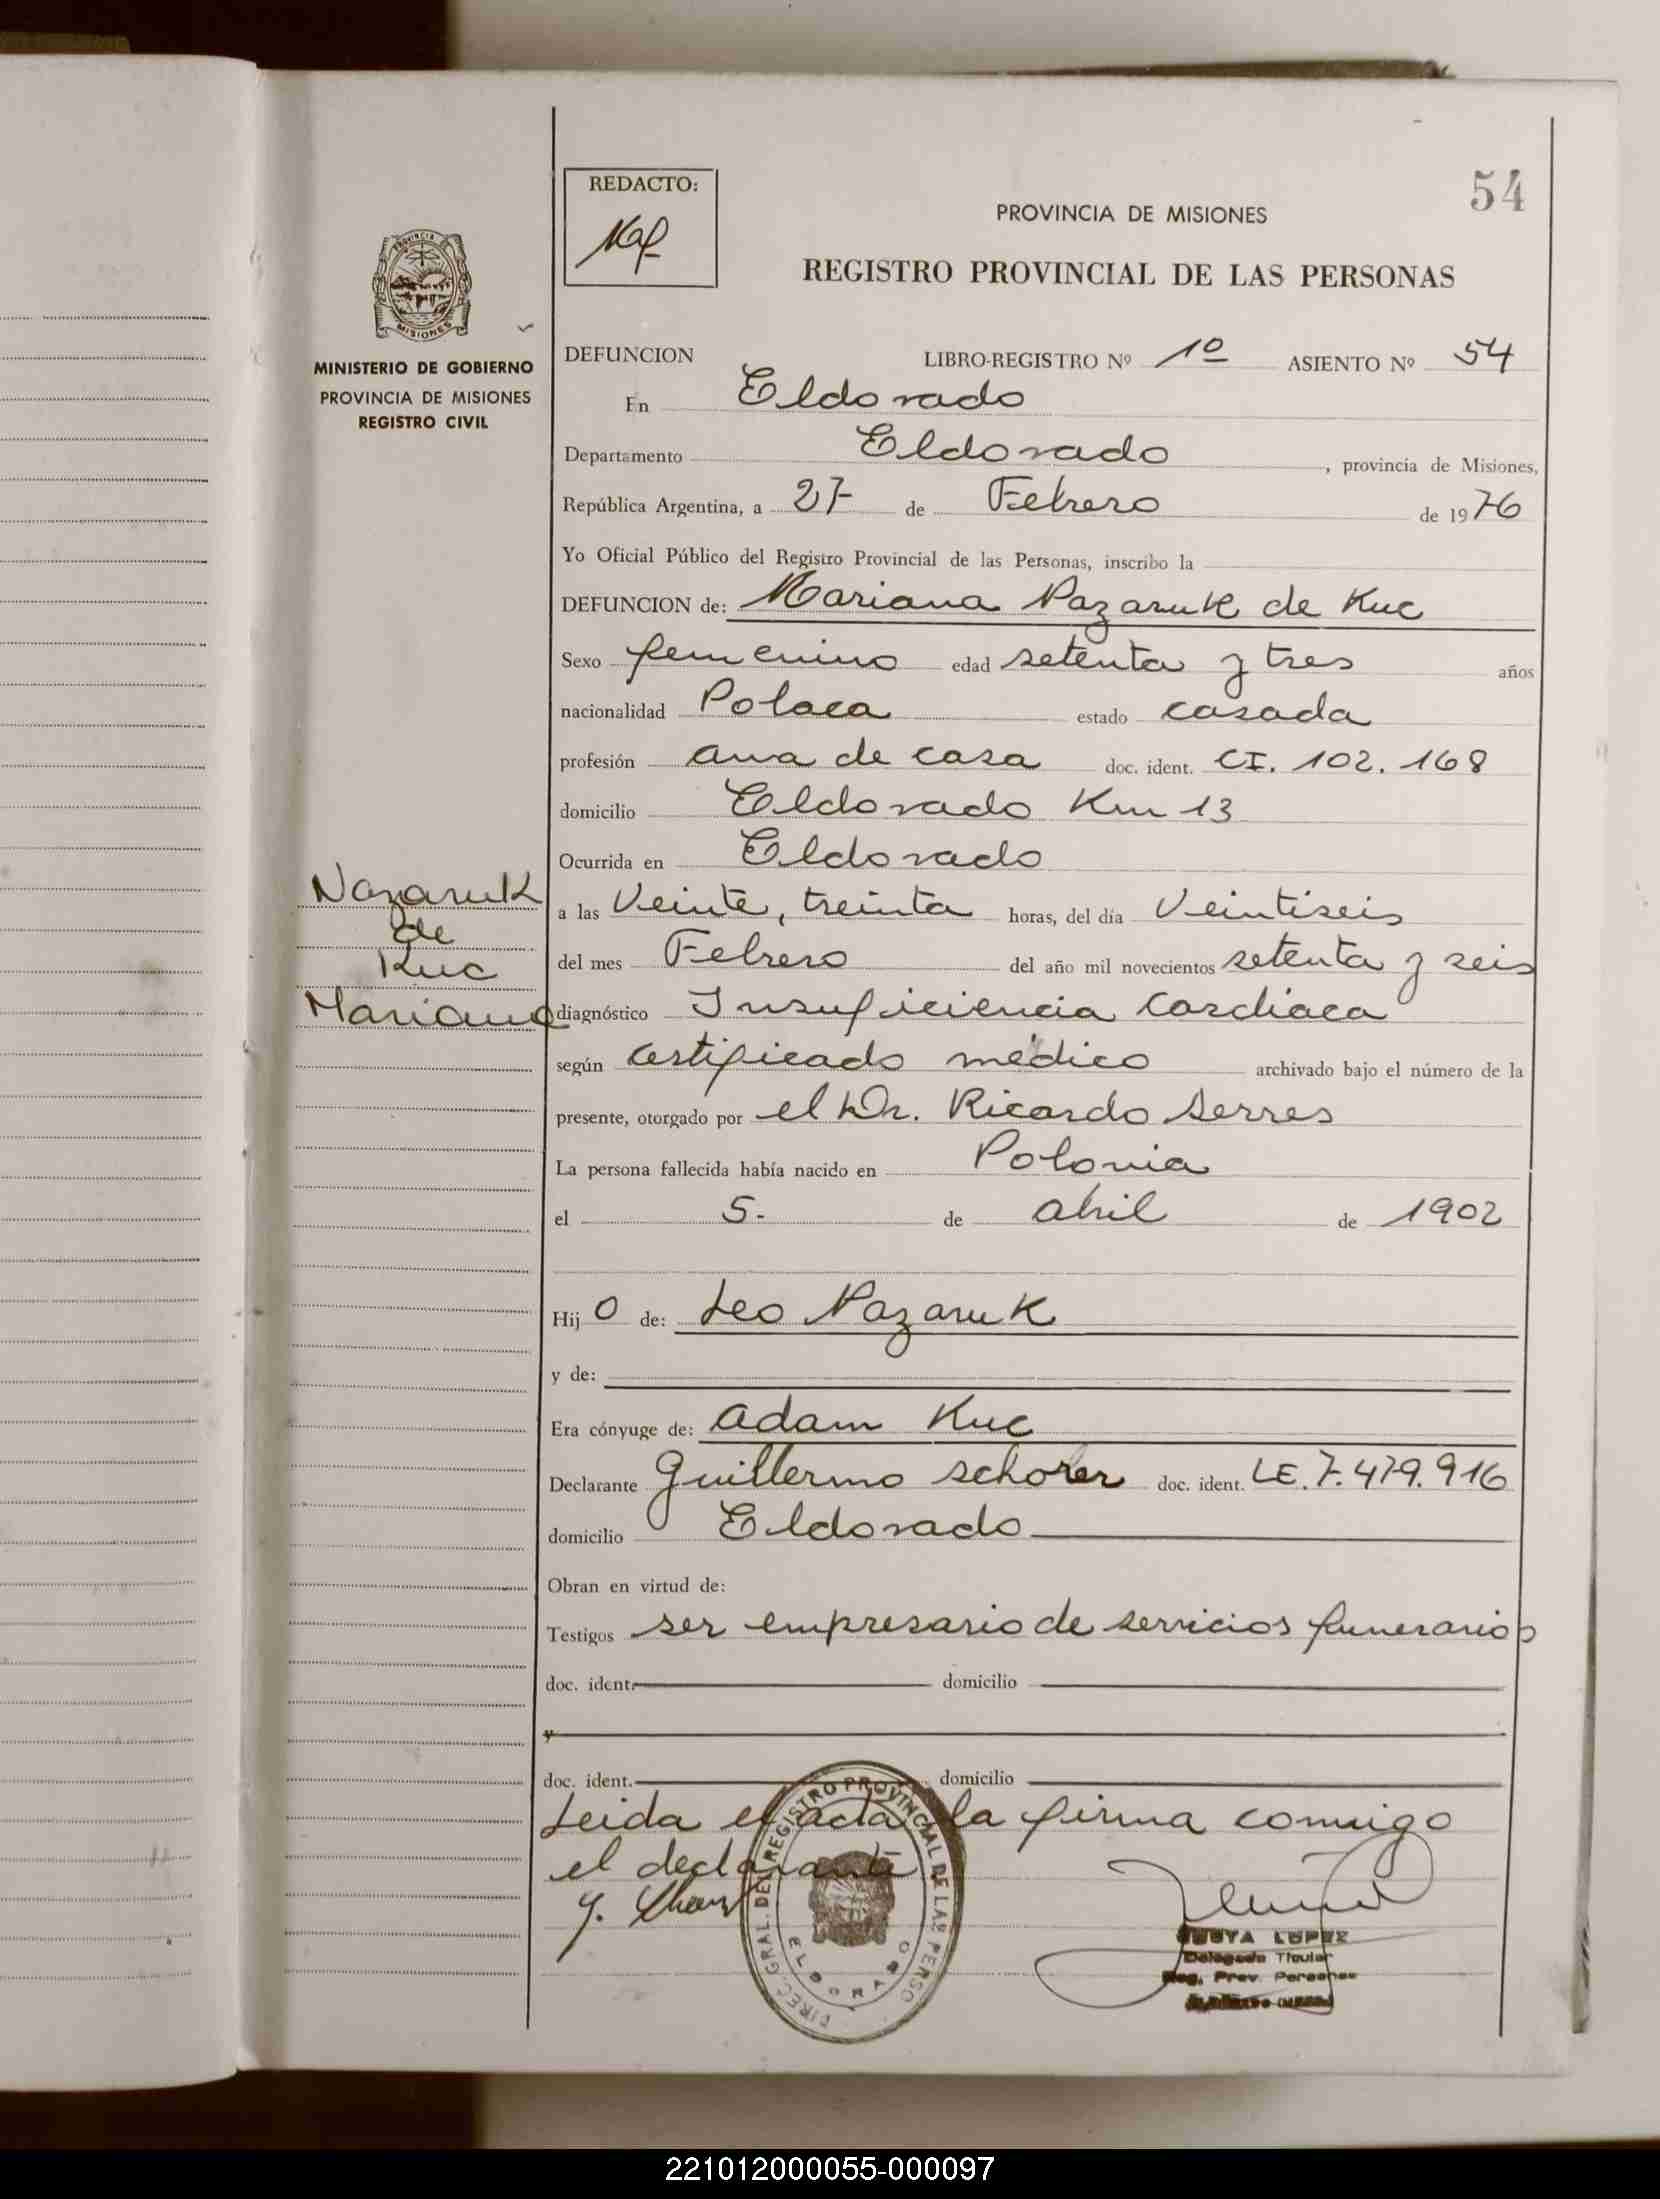 54
REDACTO:
PROVINCIA DE MISIONES
REGISTRO PROVINCIAL DE LAS PERSONAS
PROVINCIA
MISIONES
MINISTERIO DE GOBIERNO
PROVINCIA DE MISIONES
REGISTRO CIVIL
DEFUNCION LIBRO-REGISTRO Nº 1º ASIENTO Nº 54
En Eldorado
Departamento Eldorado, provincia de Misiones,
República Argentina, a 27 de Febrero de 1976
Yo Oficial Público del Registro Provincial de las Personas, inscribo la
DEFUNCION de: Mariana Nazaruk de Kuc
Sexo femenino edad setenta y tres años
nacionalidad Polaca estado casada
profesión ama de casa doc. ident. CI. 102.168
domicilio Eldorado Km 13
Ocurrida en Eldorado
a las Veinte, treinta horas, del día Veintiseis
del mes Febrero del año mil novecientos setenta y seis
diagnóstico Insuficiencia Cardiaca
según Certificado médico archivado bajo el número de la
presente, otorgado por el Dr. Ricardo Serres
La persona fallecida había nacido en Polonia
el 5. de abril de 1902
Hij o de: Leo Nazaruk
y de:
Era cónyuge de: Adam Kuc
Declarante Guillermo Schorer doc. ident. LE. 7.479.916
domicilio Eldorado
Obran en virtud de:
Testigos ser empresario de servicios funerarios
doc. ident. domicilio
y
doc. ident. domicilio
Leida el acta la firma conmigo
el declarante
Nazaruk
de
Kuc
Mariana
DIREC. GRAL. DEL REGISTRO PROVINCIAL DE LAS PERSO
ELDORADO
LOPEZ
Delegado Titular
Reg. Prov. Personas
221012000055-000097